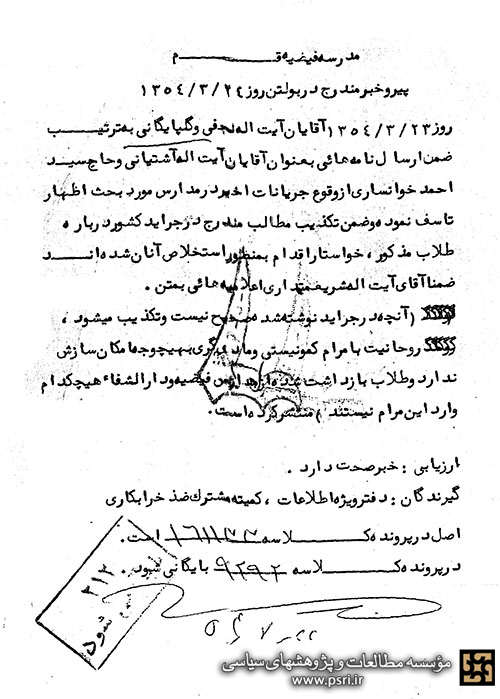 مدرسه فیضیه قـــــم
پیرو خبر مندرج در بولتن روز ۱۳٥٤/۳/۲٤
روز ۱۳٥٤/۳/۲۳ آقایان آیت اله نجفی و گلپایگانی به ترتیب
ضمن ارسال نامه هائی بعنوان آقایان آیت اله آشتیانی و حاج سید
احمد خوانساری از وقوع جریانات اخیر در مدارس مورد بحث اظهار
تاسف نموده و ضمن تکذیب مطالب مندرج در جراید کشور در باره
طلاب مذکور، خواستار اقدام بمنظور استخلاص آنان شده انـــد
ضمنا آقای آیت اله شریعتمداری اعلامیه هائی بمتن.
(آنچه در جراید نوشته شده صحیح نیست و تکذیب میشود،
روحانیت با مرام کمونیستی و مادیگری بهیچوجه امکان سازش
ندارد و طلاب بازداشت شده از مدارس فیضیه و دارالشفاء هیچکدام
وارد این مرام نیستند) منتشر کرده است.
ارزیابی: خبر صحت دارد.
گیرندگان: دفتر ویژه اطلاعات، کمیته مشترک ضد خرابکاری
اصل در پرونده کـــــلاسه ۱٦۱۱۳۳ است.
در پرونده کـــــلاسه ۹۲۹۲ بایگانی شود.
۲۱۲
شود
مؤسسه مطالعات و پژوهشهای سیاسی
www.psri.ir